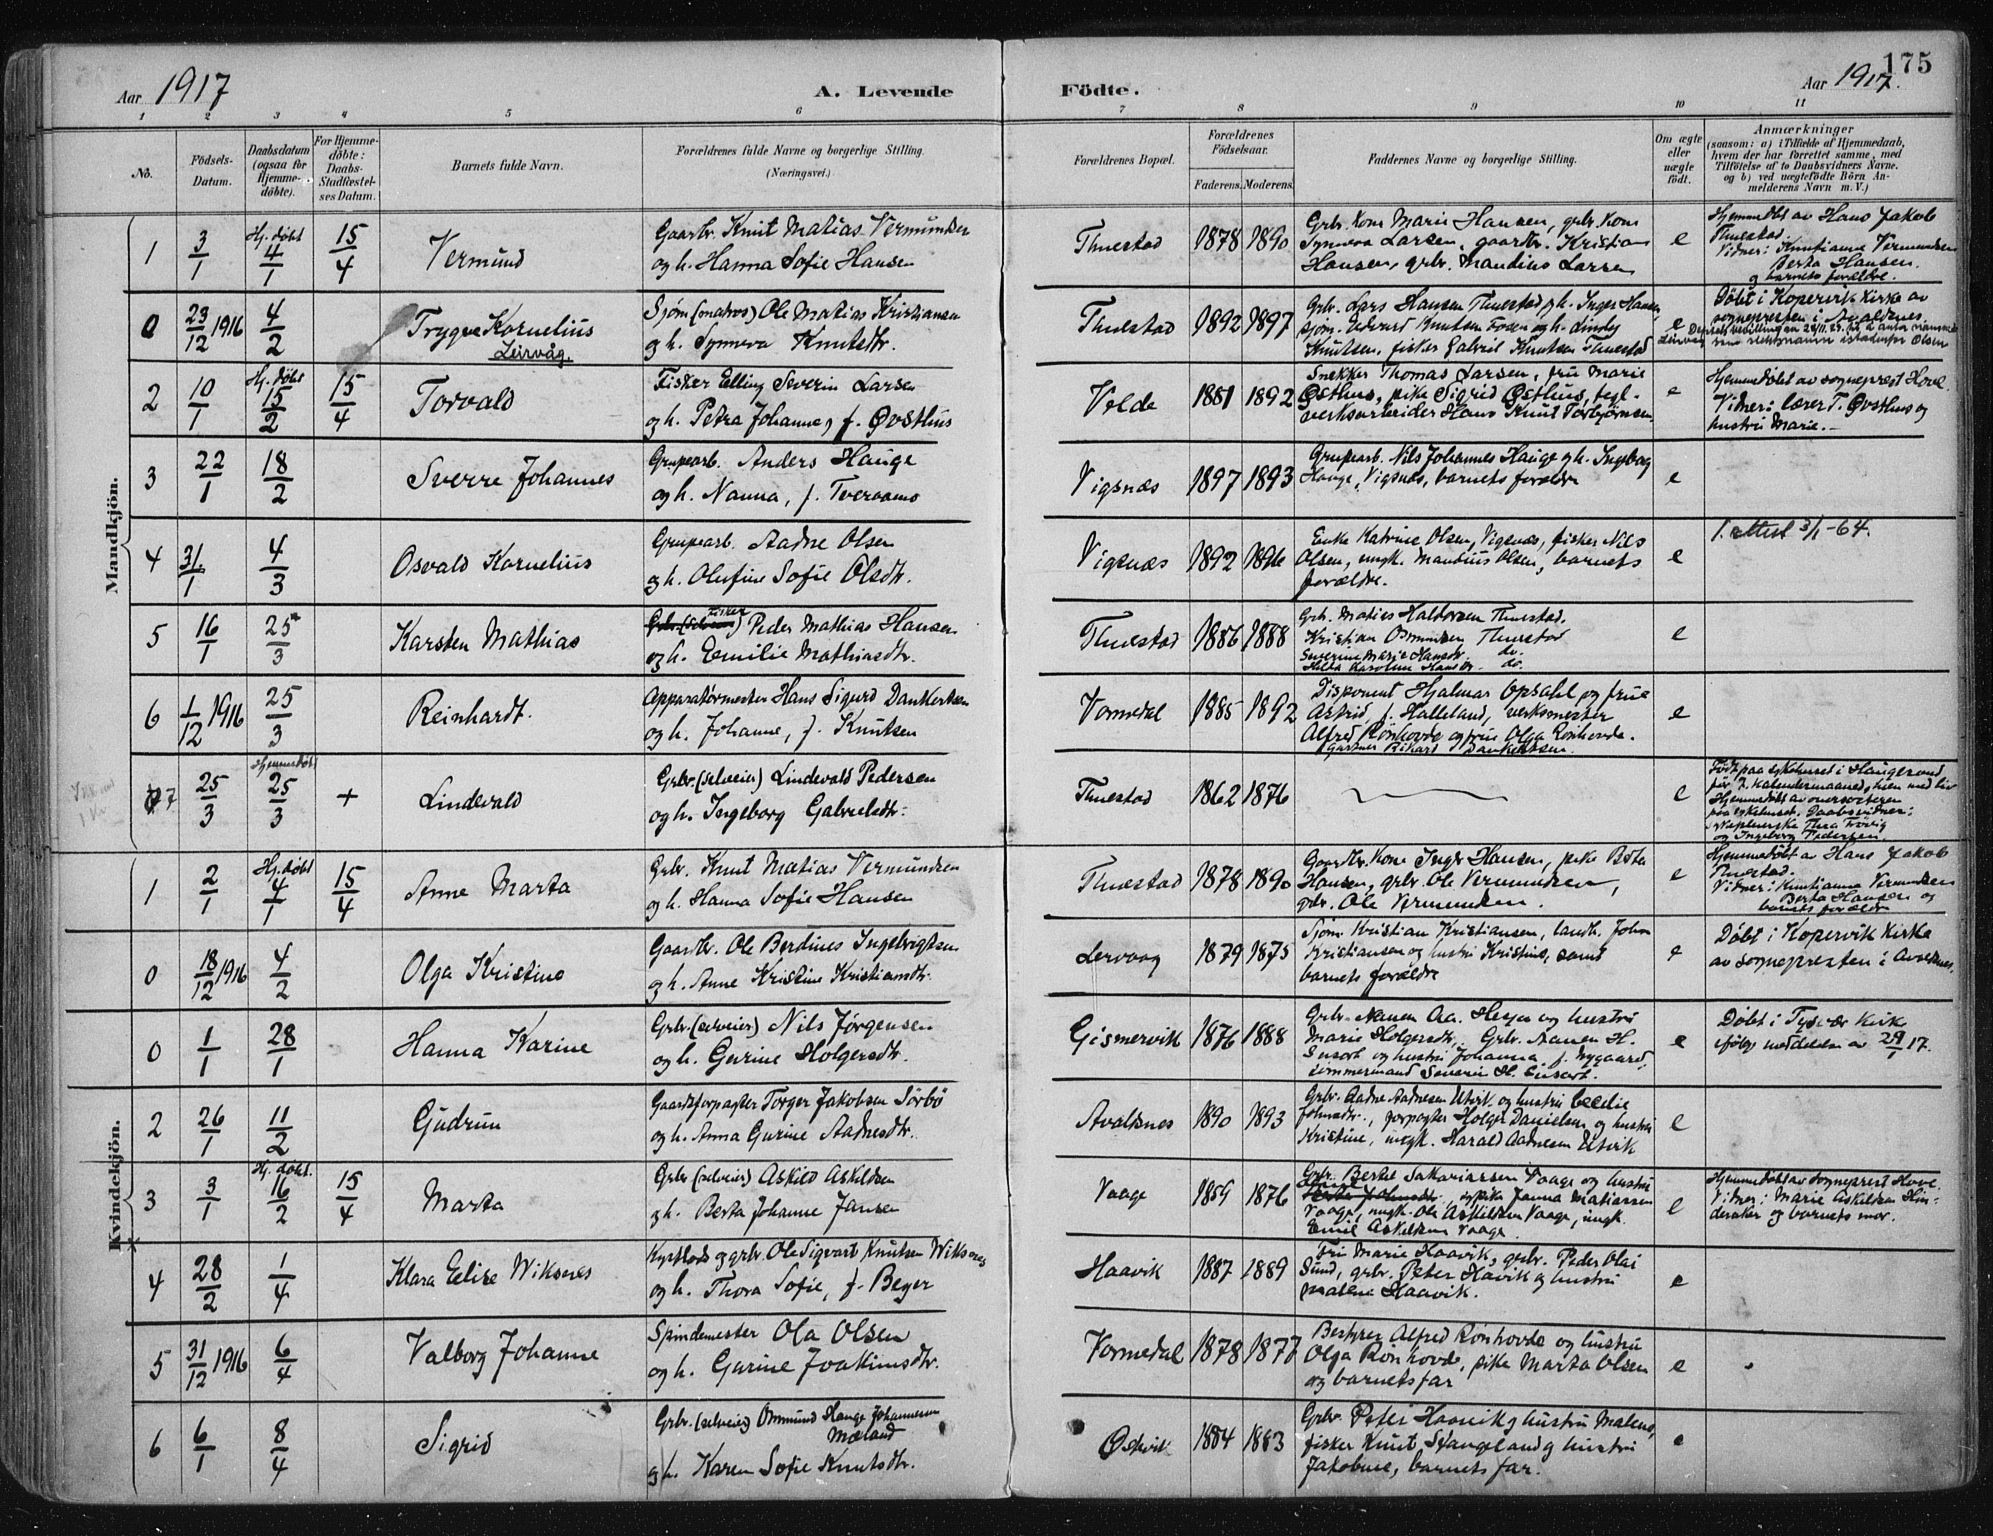 175
Aar 1917
A. Levende Födte.
Aar 1917.
1 2 3 4 5 6 7 8 9 10 11
No.
Födsels-Datum.
Daabsdatum (ogsaa for Hjemmedöbte).
For Hjemmedöbte: Daabs-Stadfæstelses Datum.
Barnets fulde Navn.
Forældrenes fulde Navne og borgerlige Stilling. (Næringsvei.)
Forældrenes Bopæl.
Forældrenes Födselsaar.
Faderens. Moderens.
Faddernes Navne og borgerlige Stilling.
Om ægte eller uægte födt.
Anmærkninger
(saasom: a) i Tilfælde af Hjemmedaab, hvem der har forrettet samme, med Tilföielse af to Daabsvidners Navne. og b) ved uægtefödte Börn Anmelderens Navn m. V.)
Mandkjön.
1 3/1 Hj. døbt 4/1 15/4 Vermund
Gaarbr. Knut Matias Vermundsen
og h. Hanna Sofie Hansen
Thuestad 1878 1890
Grbr. kone Marie Hansen, grbr. kone
Synneva Larsen, gaardbr. Kristian
Hansen, grbr. Mandius Larsen
e
Hjemmedøbt av Hans Jakob
Thuestad.
Vidner: Knutianna Vermundsen
Berta Hansen.
og barnets forældre.
0 23/12 1916 4/2 Trygve Kornelius
Leirvåg.
Sjøm (matros) Ole Matias Kristiansen
og h. Synneva Knutsdtr.
Thuestad 1892 1897
Grbr. Lars Hansen Thuestad og h. Inger Hansen,
sjøm. Edvard Knutsen Fosen og h. Lindy
Knutsen, fisker Gabriel Knutsen Tuestad
e
Døbt i Kopervik Kirke av
sognepresten i Avaldsnes.
2 10/1 Hj. døbt 15/2 15/4 Torvald
Fisker Elling Severin Larsen
og h. Petra Johanne, f. Øvsthus
Velde 1881 1892
Snekker Thomas Larsen, fru Marie
Østhus, pike Sigrid Østhus, tegl-
verksarbeider Hans Knut Torbjørnsen
e
Hjemmedøbt av sogneprest Hove.
Vidner: lærer T. Øvsthus og
hustru Marie.-
3 22/1 18/2 Sverre Johannes
Grupearb. Anders Hauge
og h. Nanna, f. Tveraamo
Vigsnæs 1897 1893
Grupearb. Nils Johannes Hauge og h. Ingeborg
Hauge, Vigsnæs, barnets forældre
e
4 31/1 4/3 Osvald Kornelius
Grupearb. Aadne Olsen
og h. Olufine Sofie Olsdtr.
Vigsnæs 1892 1896
Enke Katrine Olsen, Vigsnæs, fisker Nils
Olsen, ungk. Mandius Olsen, barnets
forældre.
e
1. attest 3/1-64.
5 16/1 25/3 Karsten Mathias
Fisker Peder Mathias Hansen
og h. Emilie Mathiasdtr.
Thuestad 1886 1888
Grb. Maties Haldorsen Thuestad.
Kristian Osmundsen Thuestad
Severine Marie Hansdtr. do.
Hilda Karoline Hansdtr. do.
e
6 1/12 1916 25/3 Reinhardt.
Apparatørmester Hans Sigurd Dankertsen
og h. Johanne, f. Knutsen
Vormedal 1885 1892
Disponent Hjalmar Opsahl og frue
Astrid, f. Halleland, verksmester
Alfred Rønhovde og frue Olga Rønhovde.
Gartner Rikard Dankertsen.
e
7 25/3 Hjemmedøbt 25/3 + Lindevald
Grbr. (selveier) Lindevald Pedersen
og h. Ingeborg Gabrielsdtr.
Thuestad 1862 1876
e
Født paa sykehuset i Haugesund
før 7. kalendermaaned, kun med liv
Hjemmedøbt av oversøsteren
paa sykehuset. Daabsvidner:
og Ingeborg Pedersen.
Kvindekjön.
1 2/1 Hj. døbt 4/1 15/4 Anne Marta
Grbr. Knut Matias Vermundsen
og h. Hanna Sofie Hansen
Thuestad 1878 1890
Gaardbr. kone Inger Hansen, pike Berta
Hansen, grbr. Ole Vermundsen,
grbr. Ole Vermundsen.
e
Hjemmedøbt av Hans Jakob
Thuestad.
Vidner: Knutianna Vermundsen
Berta Hansen og
barnets forældre
0 18/12 1916 4/2 Olga Kristine
Gaardbr. Ole Berdines Ingebrigtsen
og h. Anne Kristine Kristiansdtr.
Lervaag 1879 1875
Sjøm. Kristian Kristiansen, landh. Johan
Kristiansen og hustru Kristine, samt
barnets forældre
e
Døbt i Kopervik Kirke
av sognepresten i Avaldsnes.
0 1/1 28/1 Hanna Karine
Grbr. (selveier) Nils Jørgensen
og h. Gurine Holgersdtr.
Gismervik 1876 1888
Grbr. Aanen Aa. Heyer og hustru
Marie Holgersdtr, Grbr. Aanen H.
Susort og hustru Johanna f. Nygaard,
tømmermand Severin H. Susort.
e
Døbt i Tysvær Kirke
ifølge meddelelse av 29/1 17.
2 26/1 11/2 Gudrun
Gaardsforpagter Torger Jakobsen Sörbö
og h. Anna Gurine Aadnesdtr.
Avaldsnes 1890 1893
Grbr. Aadne Aadnesen Utvik og hustru Cecilie
Johnsdtr., forpagter Holger Danielsen og hustru
Kristine, ungk. Harald Aadnesen Utvik
e
3 3/1 Hj. døbt. 16/2 15/4 Marta
Grbr (selveier) Askild Askildsen
og h. Berta Johanne Jansen
Vaage 1859 1876
Grbr. Bertel Sakariassen Vaage og hustru
, pike Janna Matiassen
Vaage, ungk. Ole Askildsen Vaage, ungk.
Emil Askildsen Vaage
e
Hjemmedøbt av sogneprest Hove.
Vidner: Marie Askildsen Hin-
deraker og barnets mor.
4 28/2 1/4 Klara Elise Wiksnes
Kystlods og grbr. Ole Sigvart Knutsen Wiksnes
og h. Thora Sofie, f. Beyer
Haavik 1887 1889
Fru Marie Haavik, grbr. Peder Olai
Sund, grbr. Peter Haavik og hustru
Malene Haavik.
e
5 31/12 1916 6/4 Valborg Johanne
Spindemester Ola Olsen
og h. Gurine Joakimsdtr.
Vormedal 1878 1877
Bestyrer Alfred Rønhovde og hustru
Olga Rønhovde, pike Marta Olsen
og barnets far
e
6 6/1 8/4 Sigrid
Grbr. (selveier) Ommund Hauge Johannesen
Mæland
og h. Karen Sofie Knutsdtr.
Østvik 1884 1883
Grbr. Peter Haavik og hustru Malene,
fisker Knut Stangeland og hustru
Jakobine, barnets far.
e